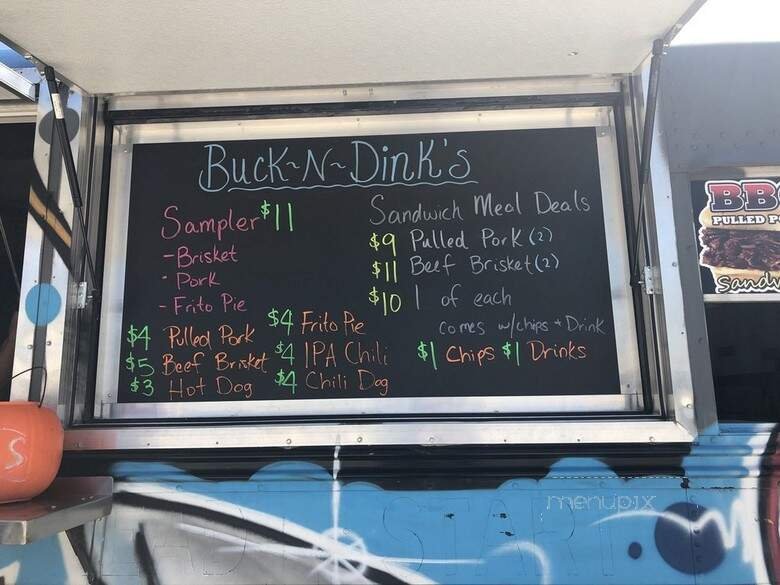 Buck~N~Dink's
Sampler $11
- Brisket
- Pork
- Frito Pie
Sandwich Meal Deals
$9 Pulled Pork (2)
$11 Beef Brisket (2)
$10 1 of each
comes w/chips + Drink
$4 Pulled Pork
$5 Beef Brisket
$3 Hot Dog
$4 Frito Pie
$4 IPA Chili
$4 Chili Dog
$1 Chips $1 Drinks
PULLED
S
menupix